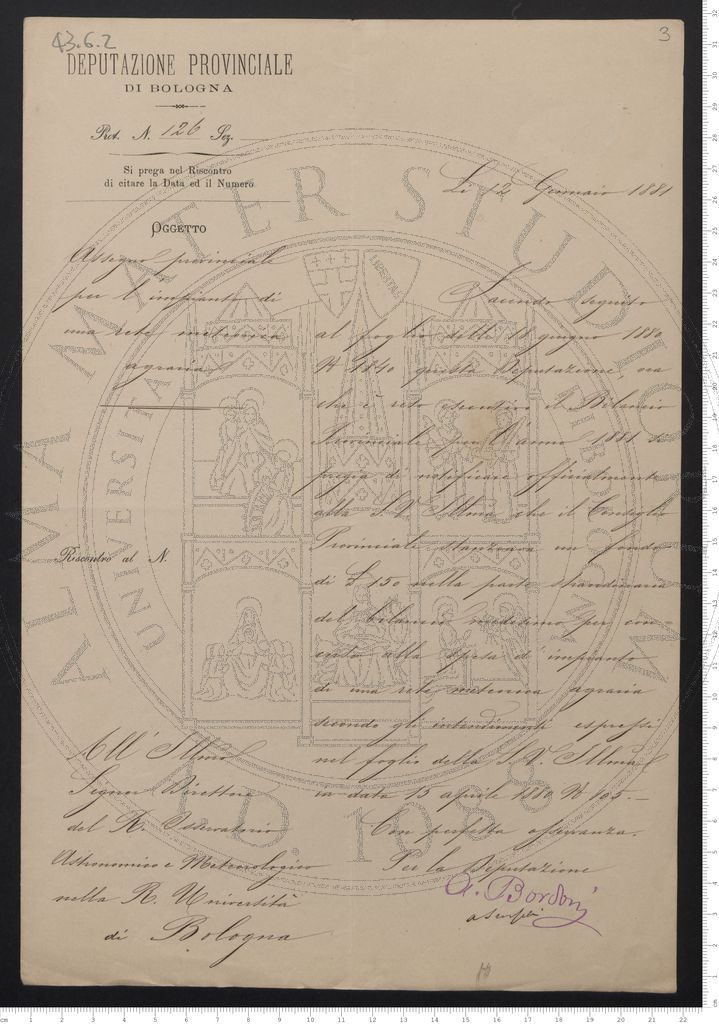 43.6.2
3
DEPUTAZIONE PROVINCIALE
DI BOLOGNA
Prot. N. 126 Sez.
Si prega nel Riscontro
di citare la Data ed il Numero
Li 12 Gennaio 1881
OGGETTO
Assegno provinciale
per l'impianto di
una rete meteorica
agraria
Facendo seguito
al foglio delli 18 giugno 1880
N 1840 questa Deputazione, ora
che è reso esecutivo il Bilancio
Provinciale per l'anno 1881 si
pregia di notificare officialmente
alla S. V. Illma che il Consiglio
Provinciale stanziava un fondo
di £ 150 nella parte straordinaria
del bilancio medesimo per con-
alla spesa d'impianto
di una rete meteorica agraria
secondo gli intendimenti espressi
nel foglio della S. V. Illma
in data 15 aprile 1880 N 105.—
Con perfetta osservanza.
Per la Deputazione
A. Bordoni
Riscontro al N.
All' Illmo
Signor Direttore
del R. Osservatorio
Astronomico e Meteorologico
nella R. Università
di Bologna
ALMA MATER STUDIORUM
A.D. 1088
LIBERTAS